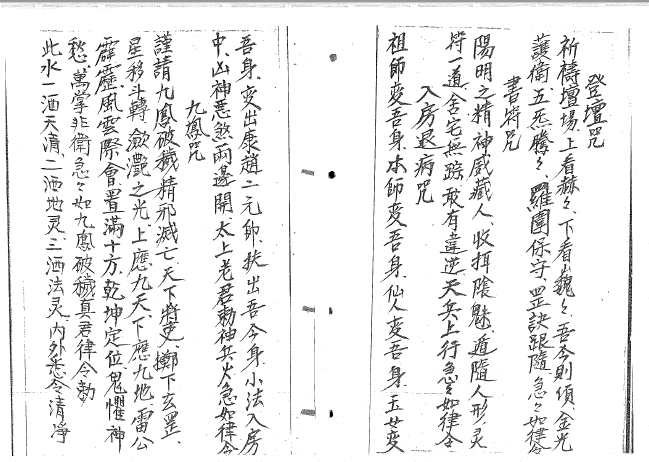 登壇咒
祈禱壇場、上看赫々、下看巍々、吾今則偵金光
護衛、五炁騰々、羅圍保守、罡訣跟隨、急々如律令
書符咒
陽明之精、神威藏人、收捉陰魅、遁隨人形、灵
符一道、舍宅無踪、敢有違逆、天兵上行、急々如律令
入房退病咒
祖師変吾身、本師変吾身、仙人変吾身、玉女変
吾身、変出康趙二元帥、扶出吾今身、小法入房
中、凶神悪煞兩邊開、太上老君勅、神兵火急如律令
九鳳咒
謹請九鳳破穢、精邪滅亡、天下將吏、擲下玄罡、
星移斗轉、歛灔之光、上應九天、下應九地、雷公
霹靂、風雲際會、置滿十方、乾坤定位、鬼懼神
愁、萬掌非衛、急々如九鳳破穢真君律令勅
此水一洒天清、二洒地灵、三洒法灵、內外悉令清凈